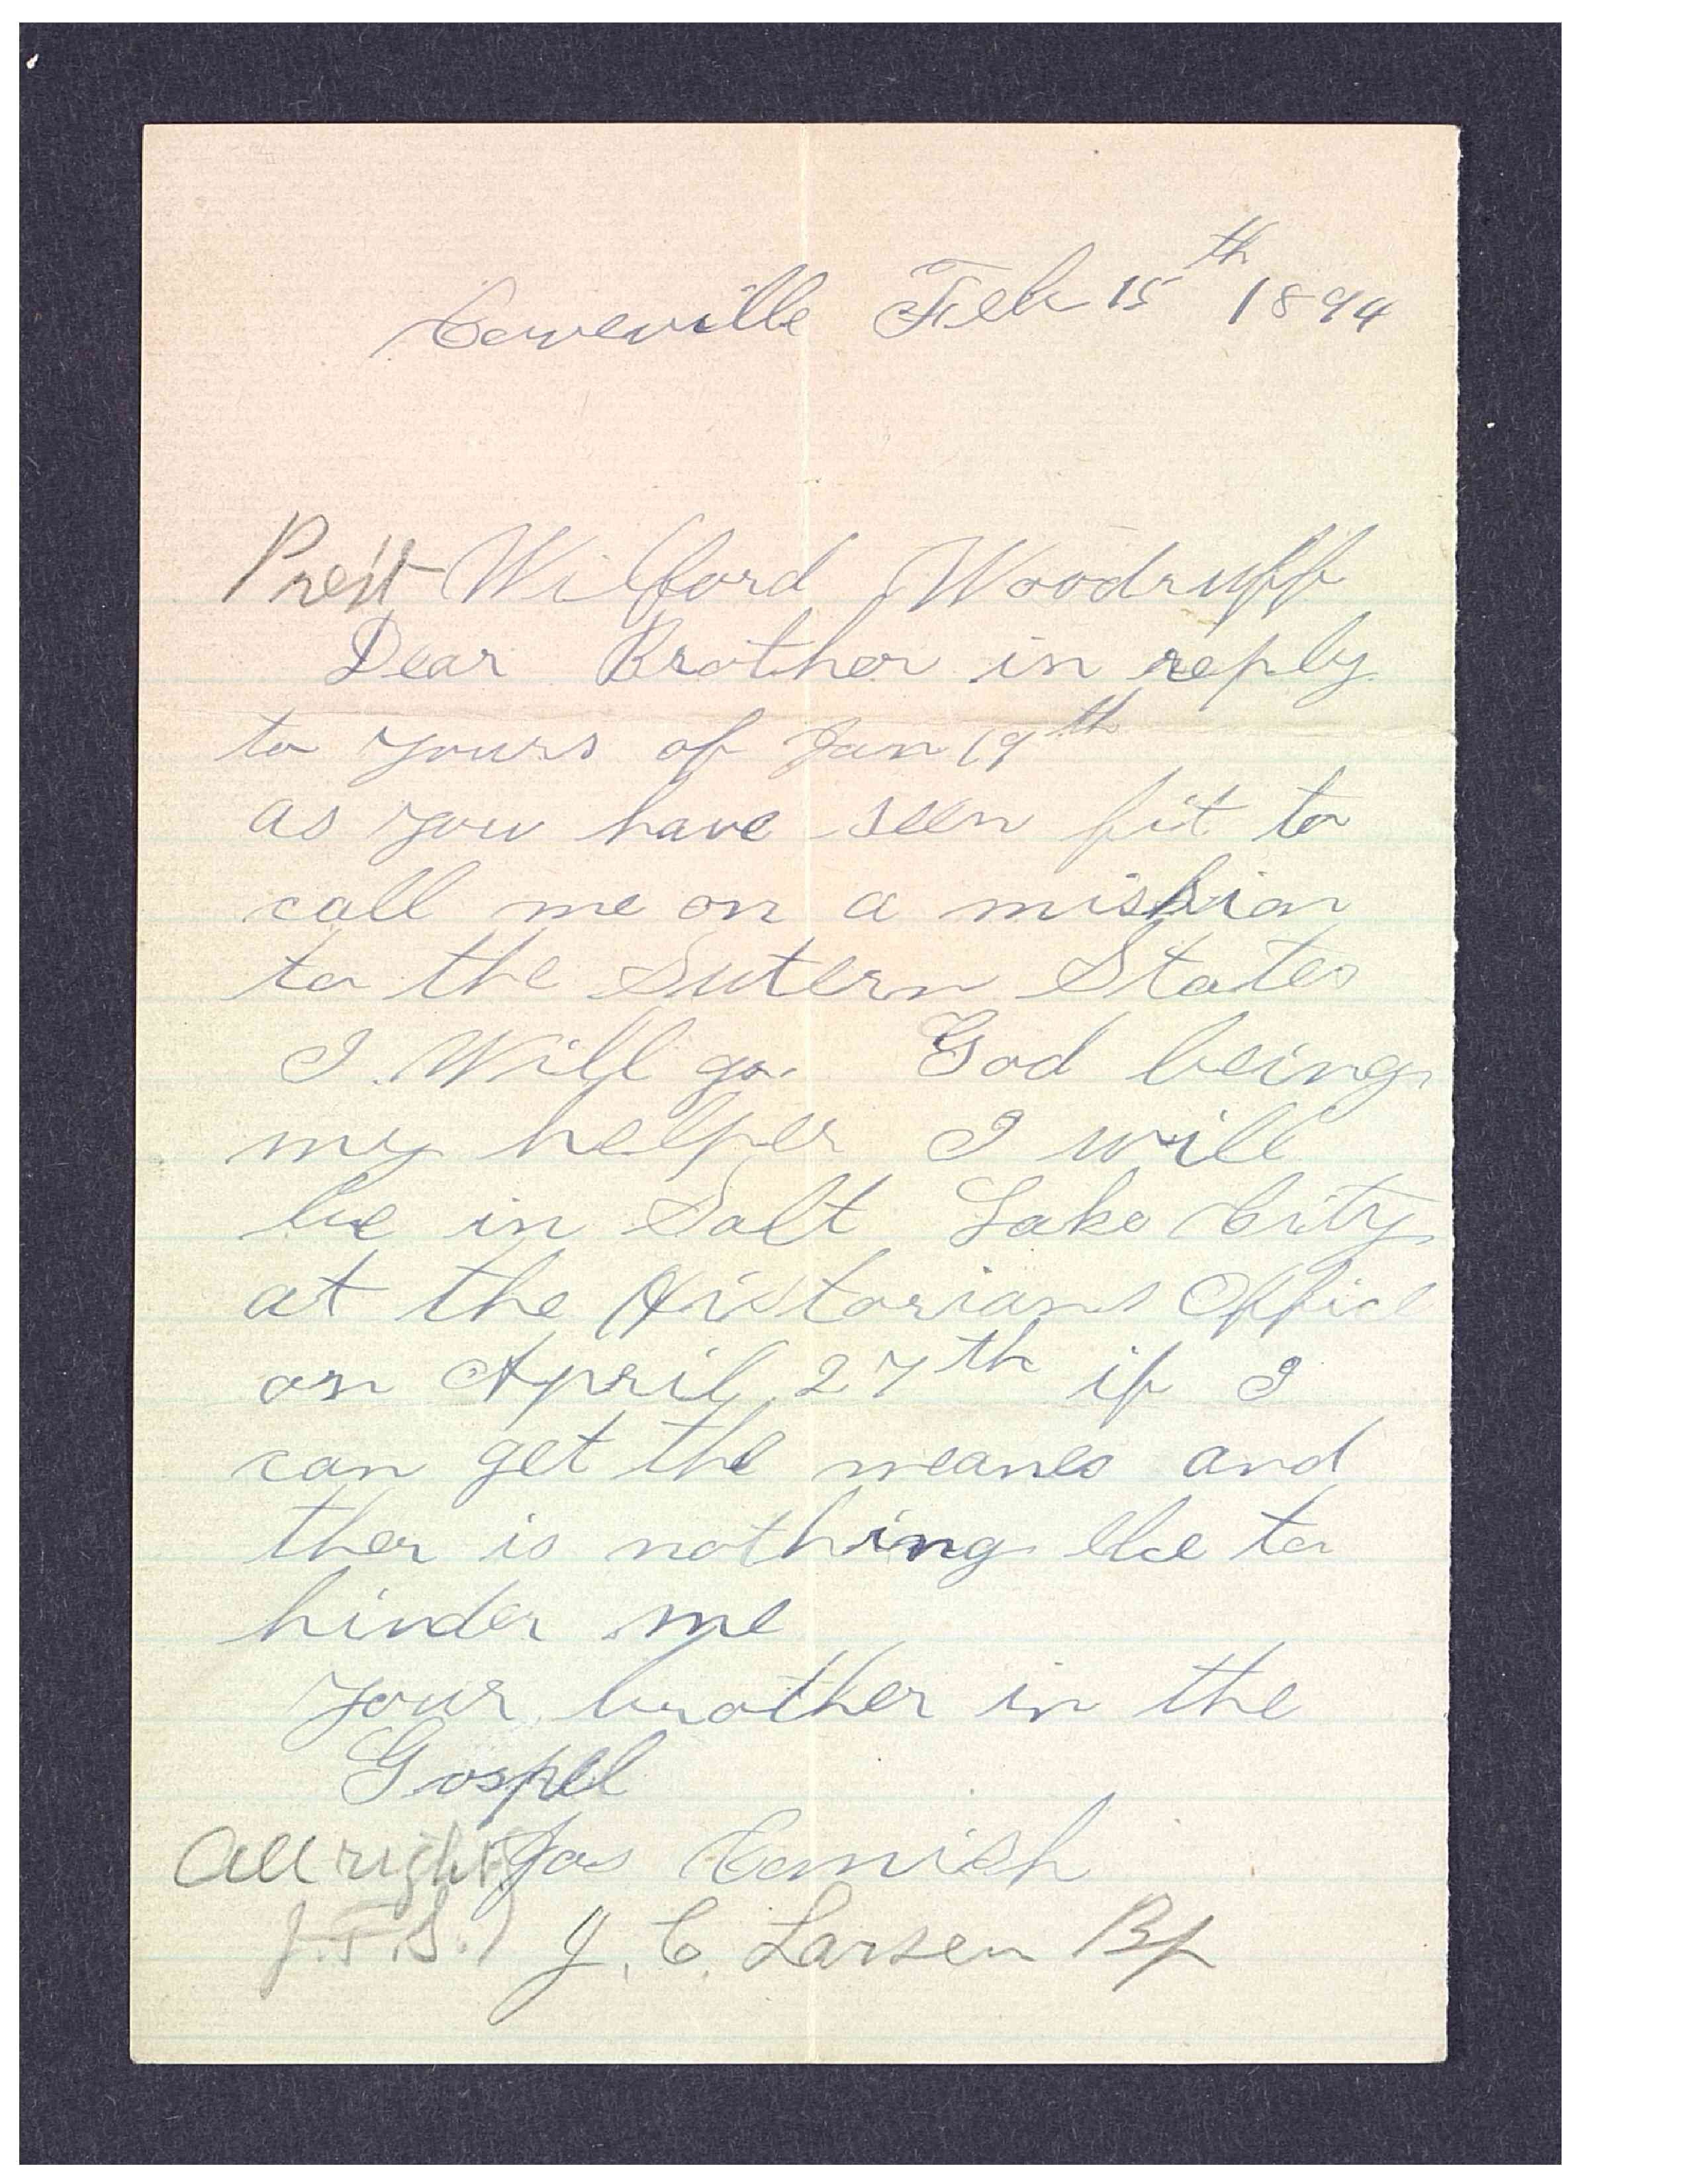 Coveville Feb 15th 1894
Prest Wilford Woodruff
Dear Brother in reply
to yours of Jan 19th
as you have seen fit to
call me on a mission
to the Sutern States
I Will go. God being
my helper I will
be in Salt Lake City
at the Historians Office
on April 27th if I
can get the meanes and
ther is nothing else to
hinder me
your brother in the
Gospel
All right Jas Cornish
J.F.S.) J. C. Larsen Bp